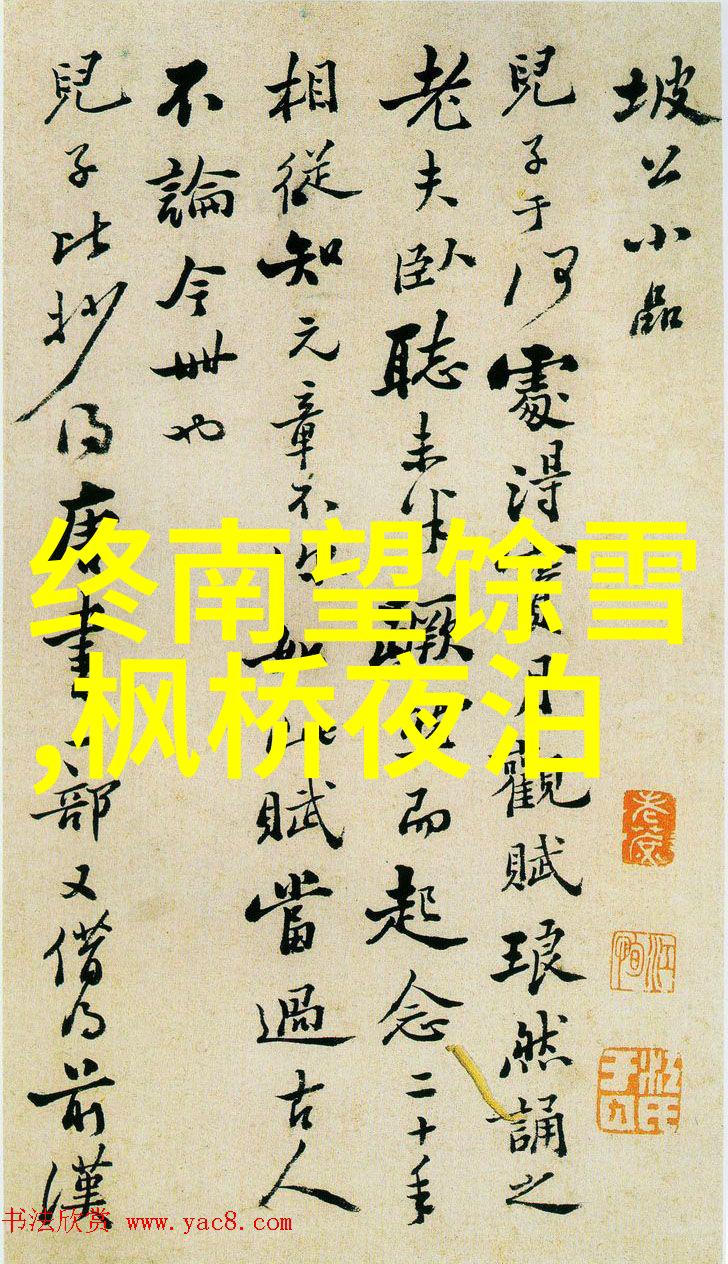 坡公小品
兒子于何處得寶月觀賦琅然誦之
老夫臥聽未半而起念二十年
相從知元章不如此賦當過古人
不論今世也
兒子比抄得唐書一部又借得前漢
终南望馀雪
,枫桥夜泊
书法欣赏 www.yac8.com